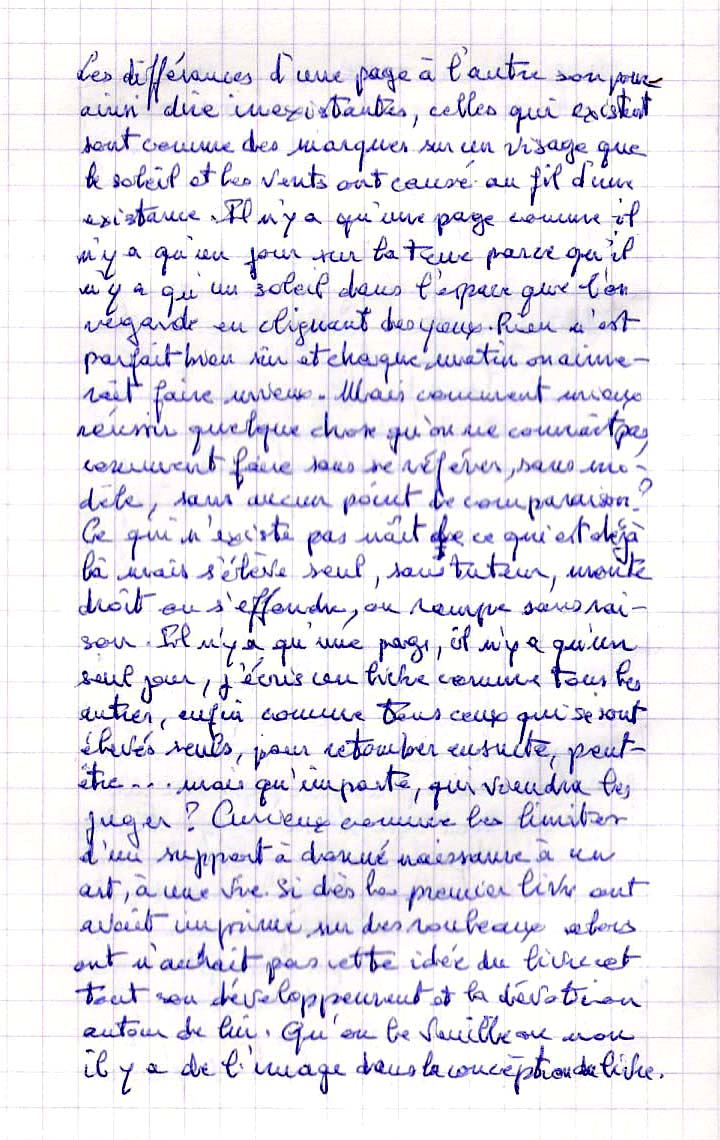 Les différances d'une page à l'autre son pour
ainsi dire inexistantes, celles qui existent
sont comme des marques sur un visage que
le soleil et les vents ont causé au fil d'une
existance. Il n'y a qu'une page comme il
n'y a qu'un jour sur la terre parce qu'il
n'y a qu'un soleil dans l'espace que l'on
regarde en clignant des yeux. Rien n'est
parfait bien sûr et chaque matin on aime-
rait faire mieux. Mais comment mieux
réussir quelque chose qu'on ne connaît pas,
comment faire sans se référer, sans mo-
dèle, sans aucun point de comparaison?
Ce qui n'existe pas naît de ce qui est déjà
là mais s'élève seul, sans tuteur, monte
droit ou s'effondre, ou rampe sans rai-
son. Il n'y a qu'une page, il n'y a qu'un
seul jour, j'écris un livre comme tous les
autres, enfin comme tous ceux qui se sont
élevés seuls, pour retomber ensuite, peut-
être... mais qu'importe, qui viendra les
juger? Curieux comme les limites
d'un support à donné naissance à un
art, à une vie. Si dès les premier livre ont
avait imprimé sur des rouleaux alors
ont n'aurait pas cette idée du livre et
tout son développement et la dévotion
autour de lui. Qu'on le veuille ou non
il y a de l'image dans la conception du livre.